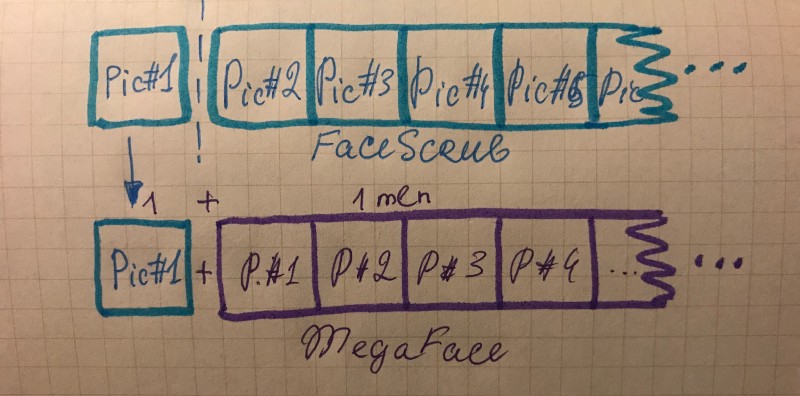 Pic#1 Pic#2 Pic#3 Pic#4 Pic#5 Pic ...
FaceScrub
1 + 1 mln
Pic#1 + P.#1 P#2 P#3 P#4 ... ...
MegaFace